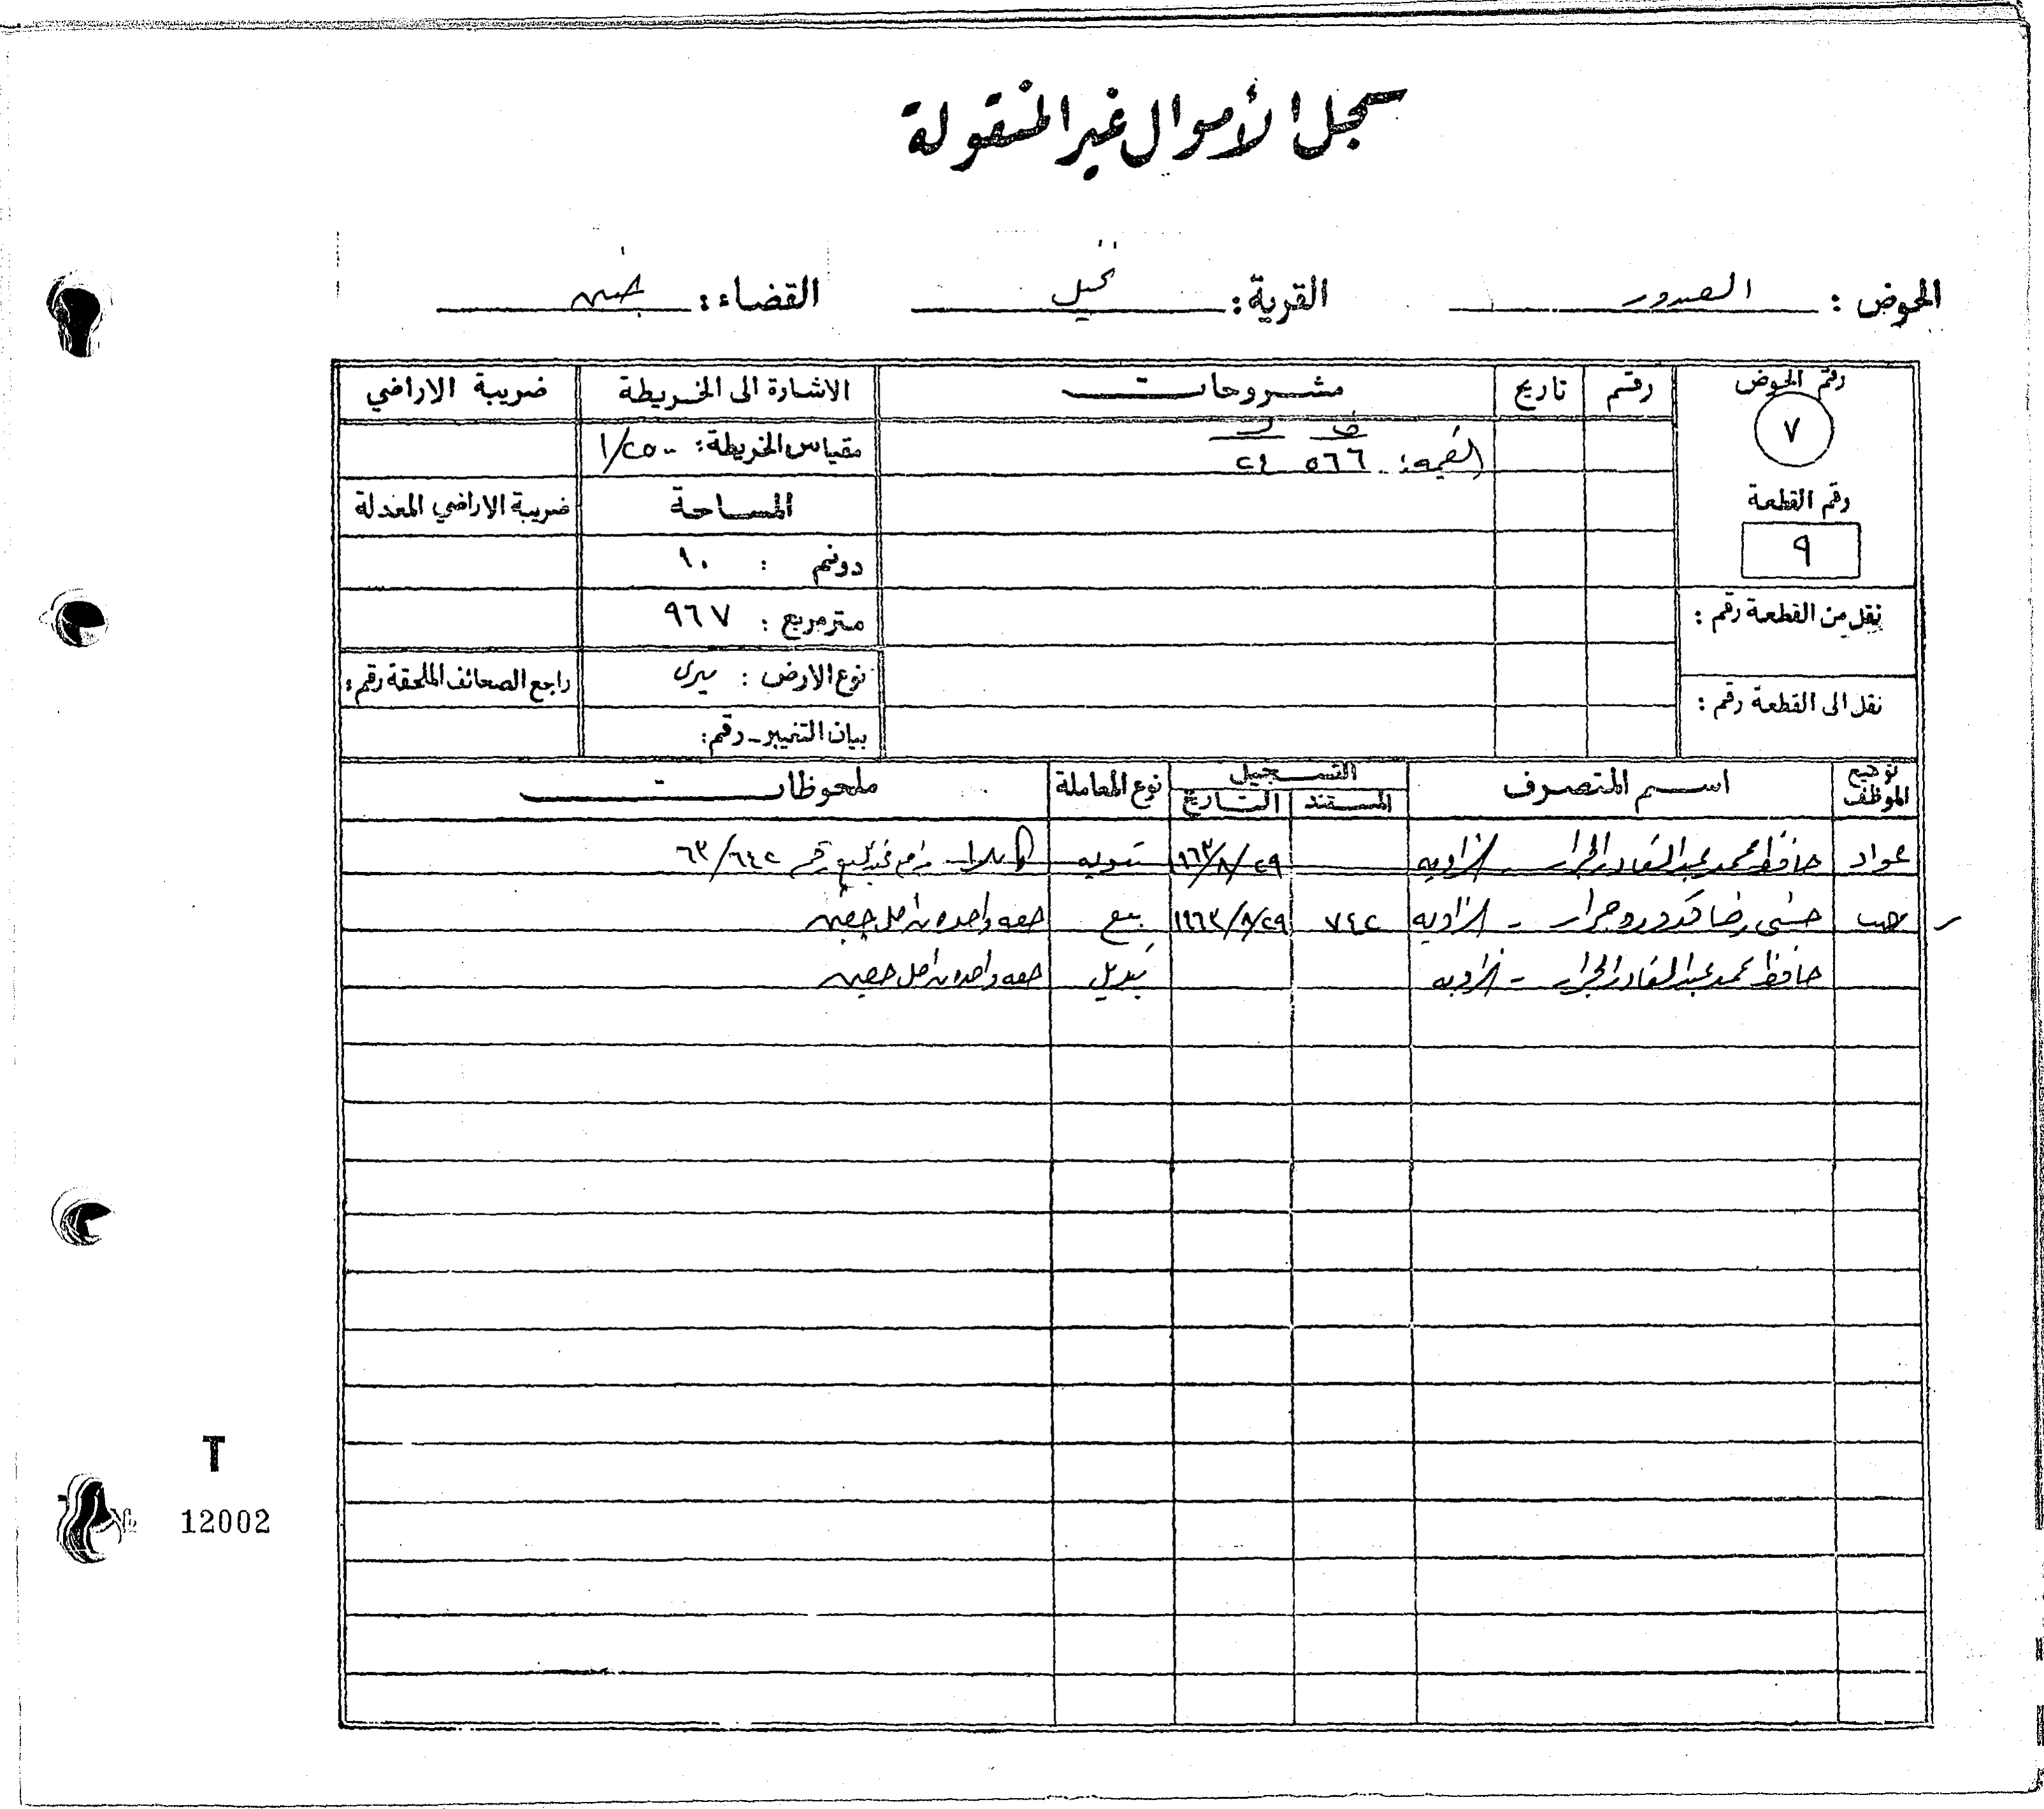 سجل الأموال غير المنقولة
الحوض : الصدور القرية: القضاء: جنين
رقم الحوض رقم تاريخ مشروحات الاشارة الى الخريطة ضريبة الاراضي
٧ القيمة: ٥٦٦ ٢٤ مقياس الخريطة: ١/٢٥٠٠
رقم القطعة المساحة ضريبة الاراضي المعدلة
٩ دونم : ١٠
نقل من القطعة رقم : متر مربع : ٩٦٧
نوع الارض : ميري راجع الصحائف الملحقة رقم:
نقل الى القطعة رقم : بيان التغيير - رقم:
توقيع الموظف اسم المتصرف التسجيل نوع المعاملة ملحوظات
المستند التاريخ
عواد حافظ محمد عبد القادر الجرار - الزاويه ٢٩/٨/٩٦٣ تسويه كاملا ٦٣/٦٤٢
حسني رضا جرار - الزاويه ٧٤٢ ٢٩/٨/١٩٦٣ بيع حصه واحده من اصل حصتين
حافظ محمد عبد القادر الجرار - الزاويه تبديل حصه واحده من اصل حصتين
T
12002